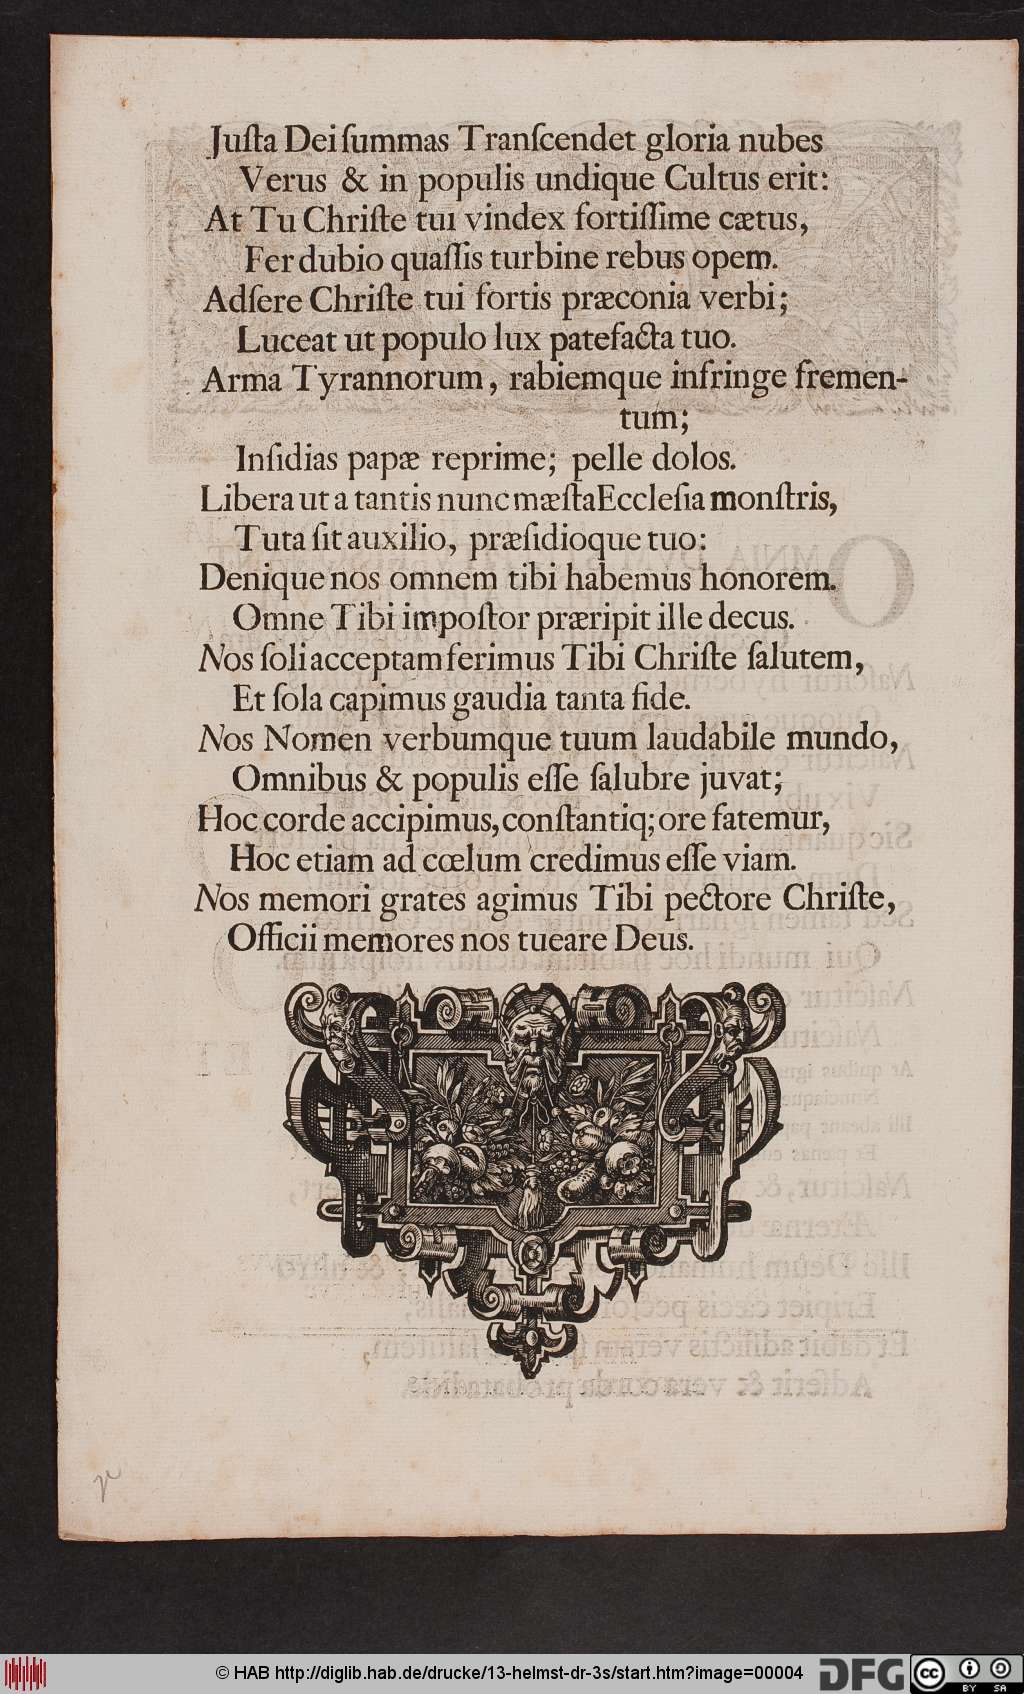 Juſta Dei ſummas Tranſcendet gloria nubes
Verus & in populis undique Cultus erit:
At Tu Chriſte tui vindex fortiſſime cætus,
Fer dubio quaſſis turbine rebus opem.
Adſere Chriſte tui fortis præconia verbi;
Luceat ut populo lux patefacta tuo.
Arma Tyrannorum, rabiemque infringe fremen-
tum;
Inſidias papæ reprime; pelle dolos.
Libera ut a tantis nunc mæſta Eccleſia monſtris,
Tuta ſit auxilio, præſidioque tuo:
Denique nos omnem tibi habemus honorem.
Omne Tibi impoſtor præripit ille decus.
Nos ſoli acceptam ferimus Tibi Chriſte ſalutem,
Et ſola capimus gaudia tanta fide.
Nos Nomen verbumque tuum laudabile mundo,
Omnibus & populis eſſe ſalubre juvat;
Hoc corde accipimus, conſtantiq; ore fatemur,
Hoc etiam ad cœlum credimus eſſe viam.
Nos memori grates agimus Tibi pectore Chriſte,
Officii memores nos tueare Deus.
© HAB http://diglib.hab.de/drucke/13-helmst-dr-3s/start.htm?image=00004
DFG
cc
BY SA